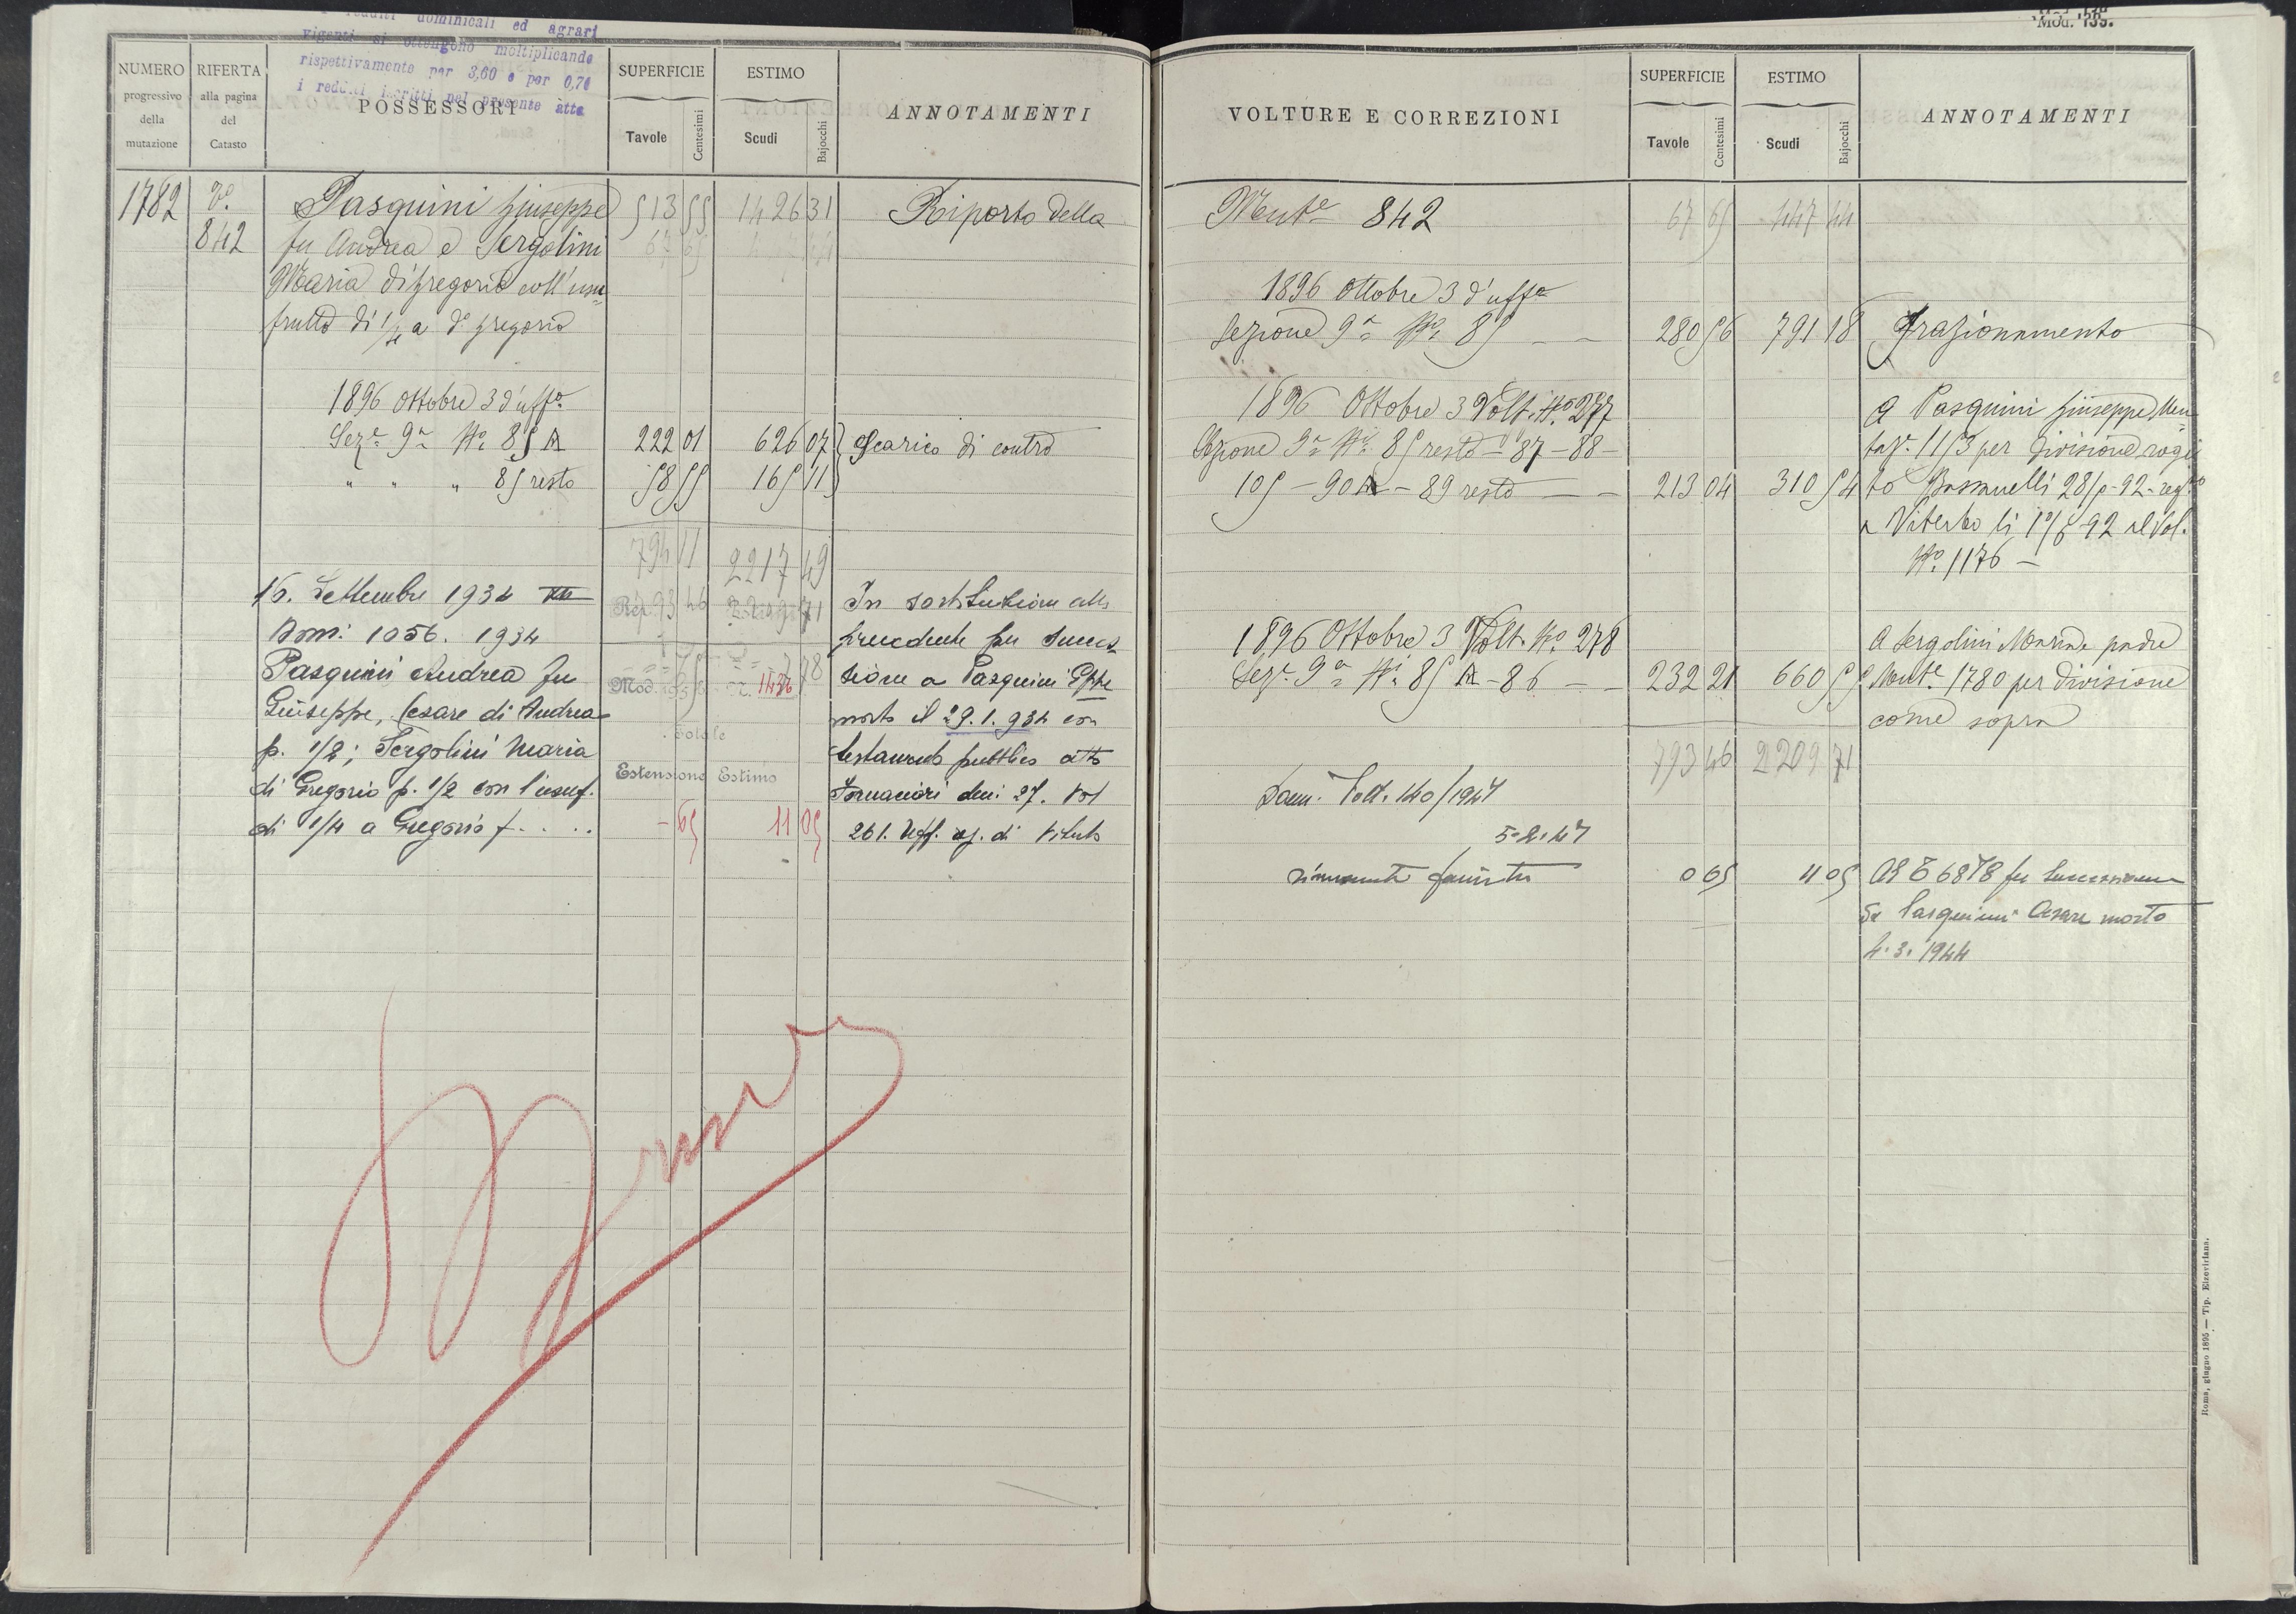 redditi dominicali ed agrari
vigenti si ottengono moltiplicando
rispettivamente per 3,60 e per 0,70
i redditi iscritti nel presente atto
NUMERO
progressivo
della
mutazione
RIFERTA
alla pagina
del
Catasto
POSSESSORI
SUPERFICIE
Tavole
Centesimi
ESTIMO
Scudi
Bajocchi
ANNOTAMENTI
1782 V.° Pasquini Giuseppe 513 55 1426 31 Riporto della
842 fu Andrea e Sergolini 67 65
Maria di Gregorio coll'usu
frutto di 1/4 a d.° Gregorio
1896 Ottobre 3 d'uff.°
Sez.e 9a N.° 85 A 222 01 626 07 Scarico di contro
" " " 85 resto 58 55 165 11
794 11 2217 49
16. Settembre 1934 XII 793 46 2209 71 In sostituzione alla
Dom: 1056. 1934 precedente per succes
Pasquini Andrea fu Mod. sione a Pasquini Gppe
Giuseppe, Cesare di Andrea morto il 29.1.934 con
Totale
p. 1/2; Sergolini Maria testamento pubblico atto
Estensione Estimo
di Gregorio p. 1/2 con l'usuf. 27. Vol
di 1/4 a Gregorio f.... - 65 11 05 261. Uff. di
Mod. 139.
VOLTURE E CORREZIONI
SUPERFICIE
Tavole
Centesimi
ESTIMO
Scudi
Bajocchi
ANNOTAMENTI
Mut.e 842 67 65 447 44
1896 Ottobre 3 d'uff.o
Sezione 9a N.° 85 - - 280 56 791 18 Frazionamento
1896 Ottobre 3 Volt. N.° 277 A Pasquini Giuseppe Mu
Sezione 9a N.i 85 resto - 87 - 88 - taz.e 1153 per divisione rogi
105 - 90 A - 89 resto - - 213 04 310 54 to Bassanelli 92 - reg.to
a Viterbo li 92 al Vol.
N.° 1176 -
1896 Ottobre 3 Volt. N.° 278 A Sergolini padre
Sez.e 9a N.i 85 A - 86 - - 232 21 660 55 Mut.e 1780 per divisione
come sopra
793 46 2209 71
Dom. Volt. 140/1947
5-2-47
rimanente partita 0 65 11 05 Al 6878 per successione
da Pasquini Cesare morto
4.3.1944
Roma, giugno 1895 — Tip. Elzeviriana.